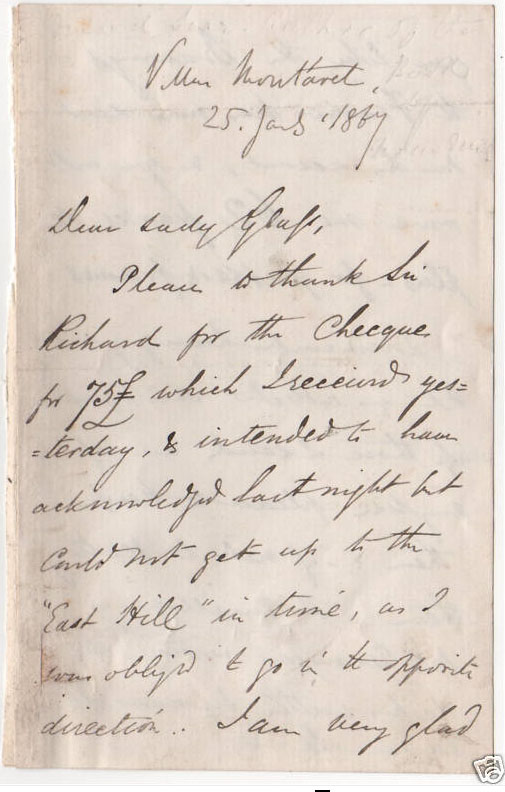 Villa Montaret,
25. Jany 1867
Dear Lady Glass,
Please to thank Sir
Richard for the Checque
for 75£ which I received yes=
=terday, & intended to have
acknowledged last night but
could not get up to the
"East Hill" in time, as I
was obliged to go in the opposite
direction.. I am very glad